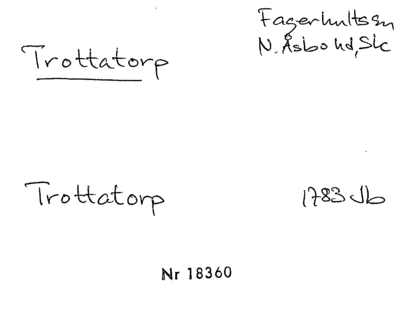 Fagerhultssn
Trottatorp N. Åsbo hd, Sk
Trottatorp 1783 Jb
Nr 18360